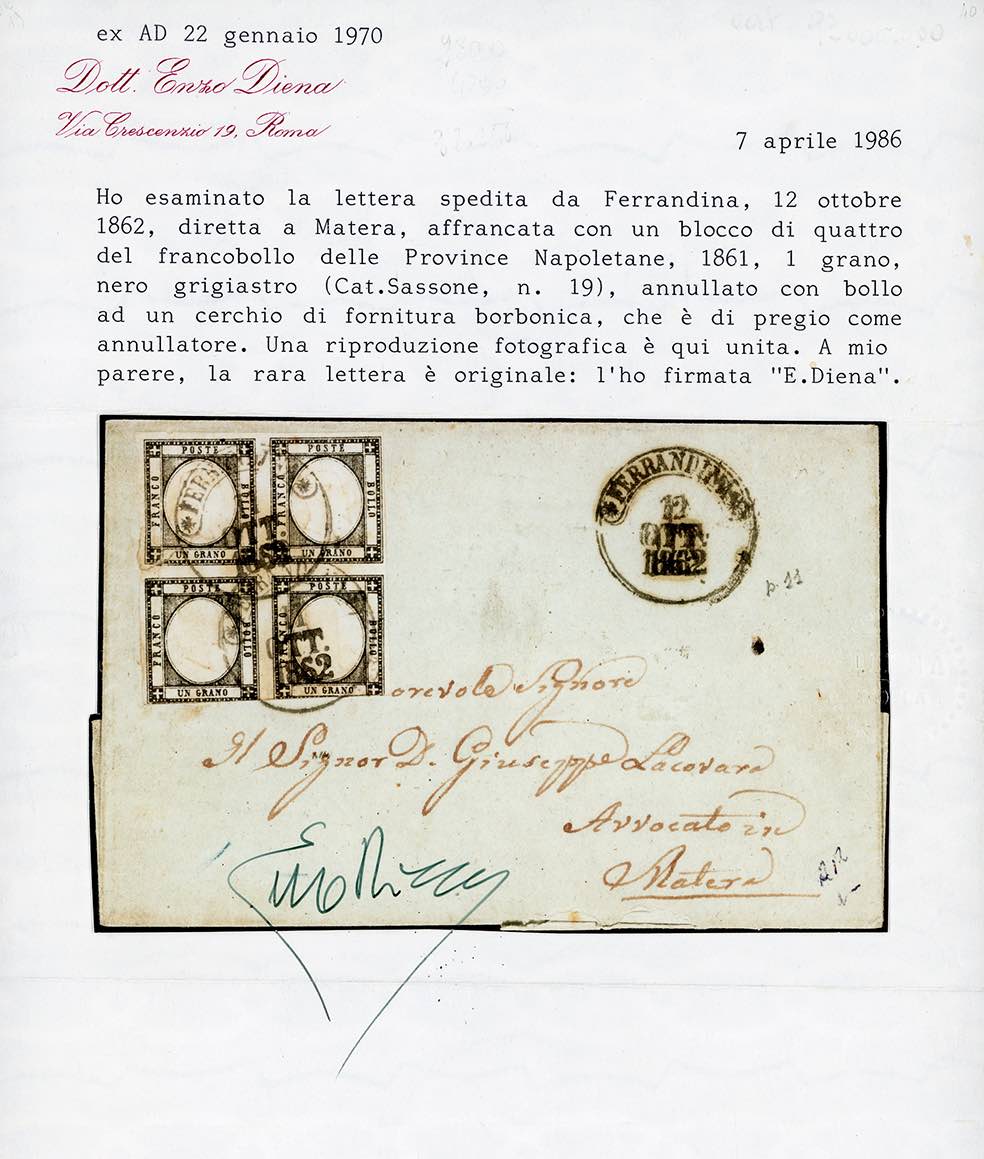 ex AD 22 gennaio 1970
Dott. Enzo Diena
Via Crescenzio 19, Roma
7 aprile 1986
Ho esaminato la lettera spedita da Ferrandina, 12 ottobre
1862, diretta a Matera, affrancata con un blocco di quattro
del francobollo delle Province Napoletane, 1861, 1 grano,
nero grigiastro (Cat.Sassone, n. 19), annullato con bollo
ad un cerchio di fornitura borbonica, che è di pregio come
annullatore. Una riproduzione fotografica è qui unita. A mio
parere, la rara lettera è originale: l'ho firmata "E.Diena".
POSTE
FRANCO
BOLLO
UN GRANO
POSTE
FRANCO
BOLLO
UN GRANO
POSTE
FRANCO
BOLLO
UN GRANO
POSTE
FRANCO
BOLLO
UN GRANO
FERR
OTT.
1862
OTT.
1862
FERRANDINA
12
OTT.
1862
p. 11
orevole Signore
Il Signor D. Giuseppe Lacovara
Avvocato in
Matera